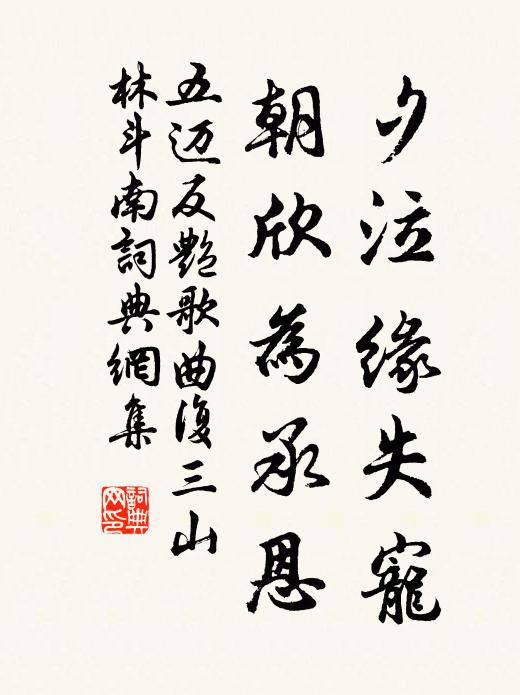 夕泣緣失寵
朝欣為承恩
五迈反艷歌曲復三山
林斗南詞典網集
詞典
网印